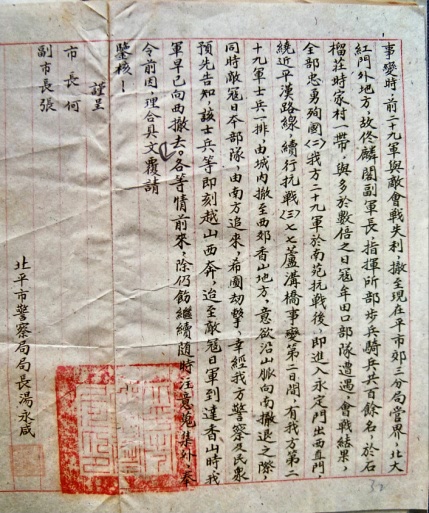 事變時前二十九軍與敵會戰失利，撤至現在平市郊三分局管界，北大
紅門外地方，故佟麟閣副軍長，指揮所部步兵騎兵共百餘名，於石
榴莊時家村一帶，與多於數倍之日寇牟田口部隊遭遇，會戰結果，
全部忠勇殉國(二)我方二十九軍於南苑抗戰後，即進入永定門出西直門，
繞近平漢路線，續行抗戰(三)七七蘆溝橋事變第二日間，有我方第二
十九軍士兵一排，由城內撤至西郊香山地方，意欲沿山脈向南撤退之際，
同時敵寇日本部隊，由南方追來，希圖劫擊，幸經我方警察及民衆
預先告知，該士兵等即刻越山西奔，迨至敵寇日軍到達香山時，我
軍早已向西撤去。各等情前來，除仍飭繼續隨時注意蒐集外，奉
令前因理合具文覆請
鑒核！
謹呈
市長何
副市長張
北平市警察局局長湯永咸